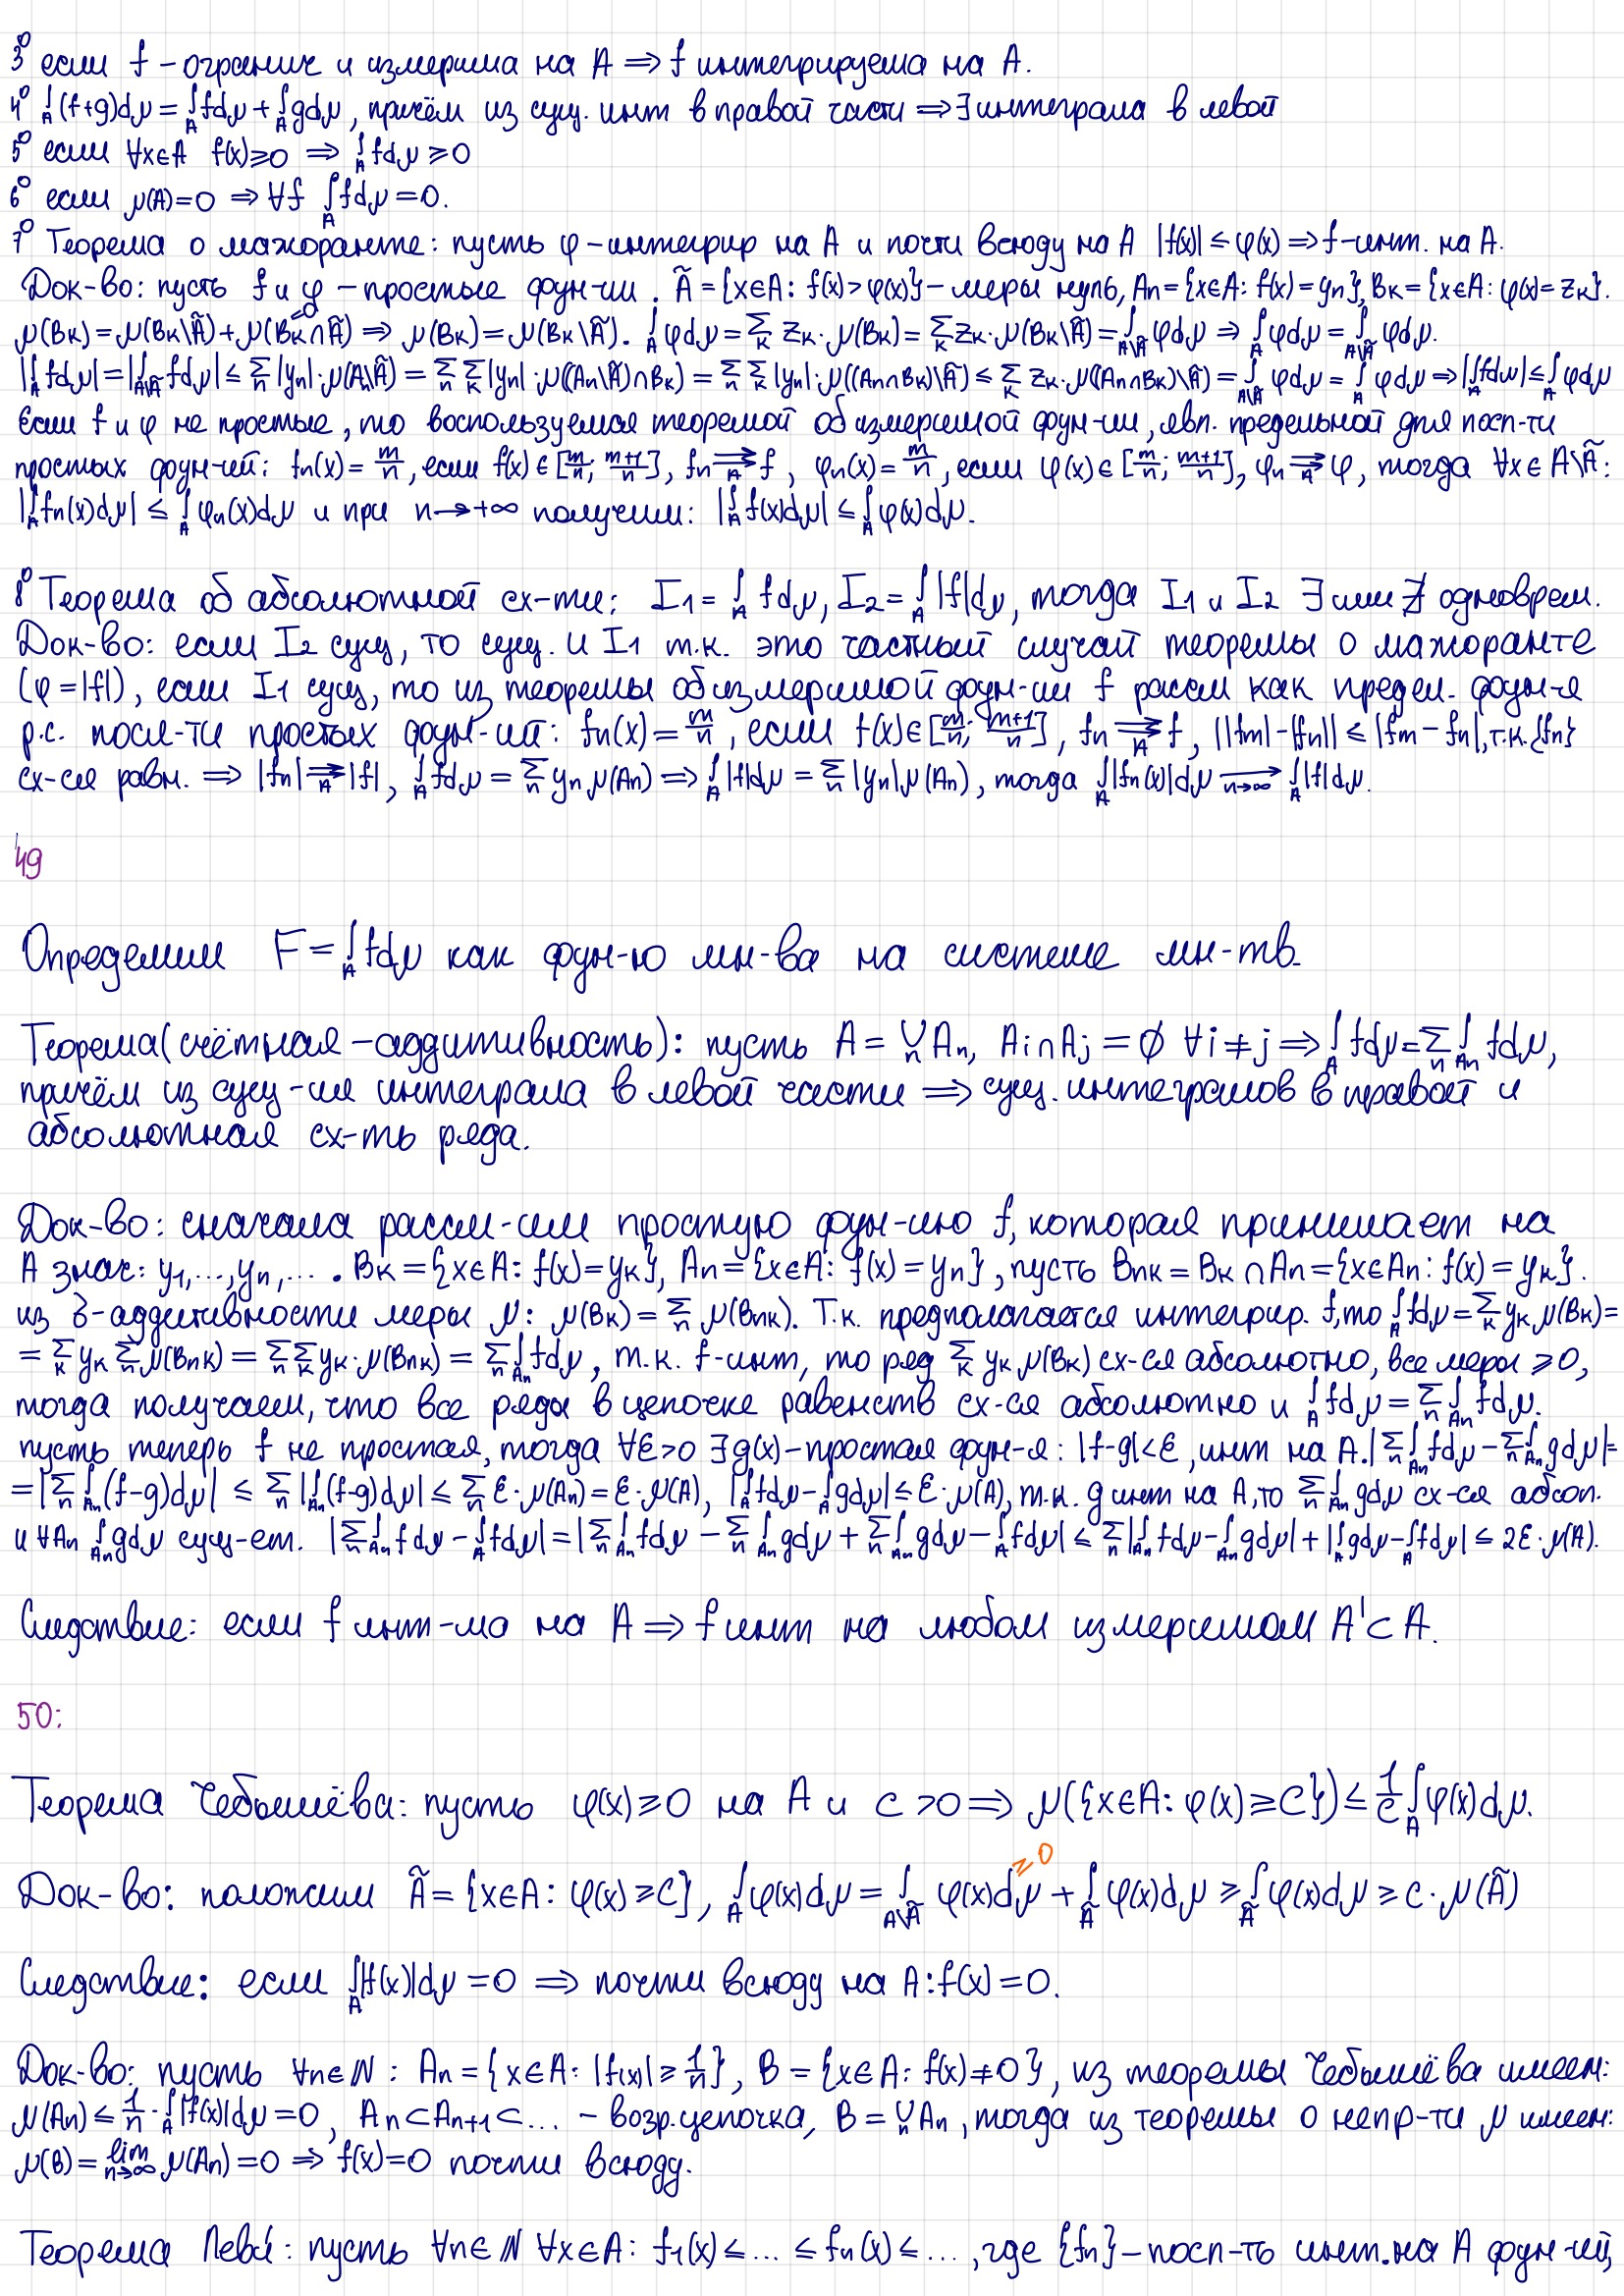 3⁰ если f – огранич и измерима на A ⇒ f интегрируема на A.
4⁰ ∫_A (f+g)dμ = ∫_A fdμ + ∫_A gdμ, причём из сущ. инт в правой части ⇒ ∃ интеграла в левой
5⁰ если ∀x∈A f(x)≥0 ⇒ ∫_A fdμ ≥0
6⁰ если μ(A)=0 ⇒ ∀f ∫_A fdμ =0.
7⁰ Теорема о мажоранте: пусть φ – интегрир на A и почти всюду на A |f(x)| ≤ φ(x) ⇒ f – инт. на A.
Док-во: пусть f и φ – простые фун-ии. Ã = {x∈A: f(x) > φ(x)} – меры нуль, An = {x∈A: f(x) = yn}, Bк = {x∈A: φ(x) = zк}.
μ(Bк) = μ(Bк\Ã) + μ(Bк∩Ã) =0 ⇒ μ(Bк) = μ(Bк\Ã). ∫_A φdμ = ∑_к zк·μ(Bк) = ∑_к zк·μ(Bк\Ã) = ∫_{A\Ã} φdμ ⇒ ∫_A φdμ = ∫_{A\Ã} φdμ.
|∫_A fdμ| = |∫_{A\Ã} fdμ| ≤ ∑_n |yn|·μ(An\Ã) = ∑_n ∑_к |yn|·μ((An\Ã)∩Bк) = ∑_n ∑_к |yn|·μ((An∩Bк)\Ã) ≤ ∑_к zк·μ((An∩Bк)\Ã) = ∫_{A\Ã} φdμ = ∫_A φdμ ⇒ |∫_A fdμ| ≤ ∫_A φdμ
Если f и φ не простые, то воспользуемся теоремой об измеримой фун-ии, явл. предельной для посл-ти
простых фун-ий: fn(x) = m/n, если f(x) ∈ [m/n; m+1/n], fn ⇉_A f, φn(x) = m/n, если φ(x) ∈ [m/n; m+1/n], φn ⇉_A φ, тогда ∀x∈A\Ã:
|∫_A fn(x)dμ| ≤ ∫_A φn(x)dμ и при n→+∞ получим: |∫_A f(x)dμ| ≤ ∫_A φ(x)dμ.
8⁰ Теорема об абсолютной сх-ти: I1 = ∫_A fdμ, I2 = ∫_A |f|dμ, тогда I1 и I2 ∃ или ∄ одноврем.
Док-во: если I2 сущ, то сущ. и I1 т.к. это частный случай теоремы о мажоранте
(φ = |f|), если I1 сущ, то из теоремы об измеримой фун-ии f рассм как предел. фун-я
р.с. посл-ти простых фун-ий: fn(x) = m/n, если f(x) ∈ [m/n; m+1/n], fn ⇉_A f, ||fm| - |fn|| ≤ |fm - fn|, т.к. {fn}
сх-ся равн. ⇒ |fn| ⇉_A |f|, ∫_A fdμ = ∑_n yn μ(An) ⇒ ∫_A |f|dμ = ∑_n |yn| μ(An), тогда ∫_A |fn(x)|dμ →_{n→∞} ∫_A |f|dμ.
49
Определим F = ∫_A fdμ как фун-ю мн-ва на системе мн-тв.
Теорема (счётная – аддитивность): пусть A = ∪_n An, Ai∩Aj = ∅ ∀i≠j ⇒ ∫_A fdμ = ∑_n ∫_An fdμ,
причём из сущ-ия интеграла в левой части ⇒ сущ. интегралов в правой и
абсолютная сх-ть ряда.
Док-во: сначала рассм-им простую фун-ию f, которая принимает на
A знач: y1,...,yn,... . Bк = {x∈A: f(x)=yк}, An = {x∈A: f(x) = yn}, пусть Bnк = Bк∩An = {x∈An: f(x) = yк}.
из б-аддитивности меры μ: μ(Bк) = ∑_n μ(Bnк). Т.к. предполагается интегрир. f, то ∫_A fdμ = ∑_к yк μ(Bк) =
= ∑_к yк ∑_n μ(Bnк) = ∑_n ∑_к yк·μ(Bnк) = ∑_n ∫_An fdμ, т.к. f–инт, то ряд ∑_к yк μ(Bк) сх-ся абсолютно, все меры ≥0,
тогда получаем, что все ряды в цепочке равенств сх-ся абсолютно и ∫_A fdμ = ∑_n ∫_An fdμ.
пусть теперь f не простая, тогда ∀ε>0 ∃g(x) – простая фун-я: |f-g|<ε, инт на A. |∑_n ∫_An fdμ - ∑_n ∫_An gdμ| =
= |∑_n ∫_An (f-g)dμ| ≤ ∑_n |∫_An (f-g)dμ| ≤ ∑_n ε·μ(An) = ε·μ(A), |∫_A fdμ - ∫_A gdμ| ≤ ε·μ(A), т.к. g инт на A, то ∑_n ∫_An gdμ сх-ся абсол.
и ∀An ∫_An gdμ сущ-ет. |∑_n ∫_An fdμ - ∫_A fdμ| = |∑_n ∫_An fdμ - ∑_n ∫_An gdμ + ∑_n ∫_An gdμ - ∫_A fdμ| ≤ ∑_n |∫_An fdμ - ∫_An gdμ| + |∫_A gdμ - ∫_A fdμ| ≤ 2ε·μ(A).
Следствие: если f инт-ма на A ⇒ f инт на любом измеримом A' ⊂ A.
50:
Теорема Чебышёва: пусть φ(x) ≥ 0 на A и c > 0 ⇒ μ({x∈A: φ(x) ≥ C}) ≤ 1/c ∫_A φ(x)dμ.
Док-во: положим Ã = {x∈A: φ(x) ≥ C}, ∫_A φ(x)dμ = ∫_{A\Ã} φ(x)dμ ≥0 + ∫_Ã φ(x)dμ ≥ ∫_Ã φ(x)dμ ≥ c·μ(Ã)
Следствие: если ∫_A |f(x)|dμ = 0 ⇒ почти всюду на A: f(x) = 0.
Док-во: пусть ∀n∈ℕ: An = {x∈A: |f(x)| ≥ 1/n}, B = {x∈A: f(x) ≠ 0}, из теоремы Чебышёва имеем:
μ(An) ≤ 1/n · ∫_A |f(x)|dμ = 0, An ⊂ An+1 ⊂ ... – возр. цепочка, B = ∪_n An, тогда из теоремы о непр-ти μ имеем:
μ(B) = lim_{n→∞} μ(An) = 0 ⇒ f(x) = 0 почти всюду.
Теорема Леви: пусть ∀n∈ℕ ∀x∈A: f1(x) ≤ ... ≤ fn(x) ≤ ..., где {fn} – посл-ть инт. на A фун-ий,